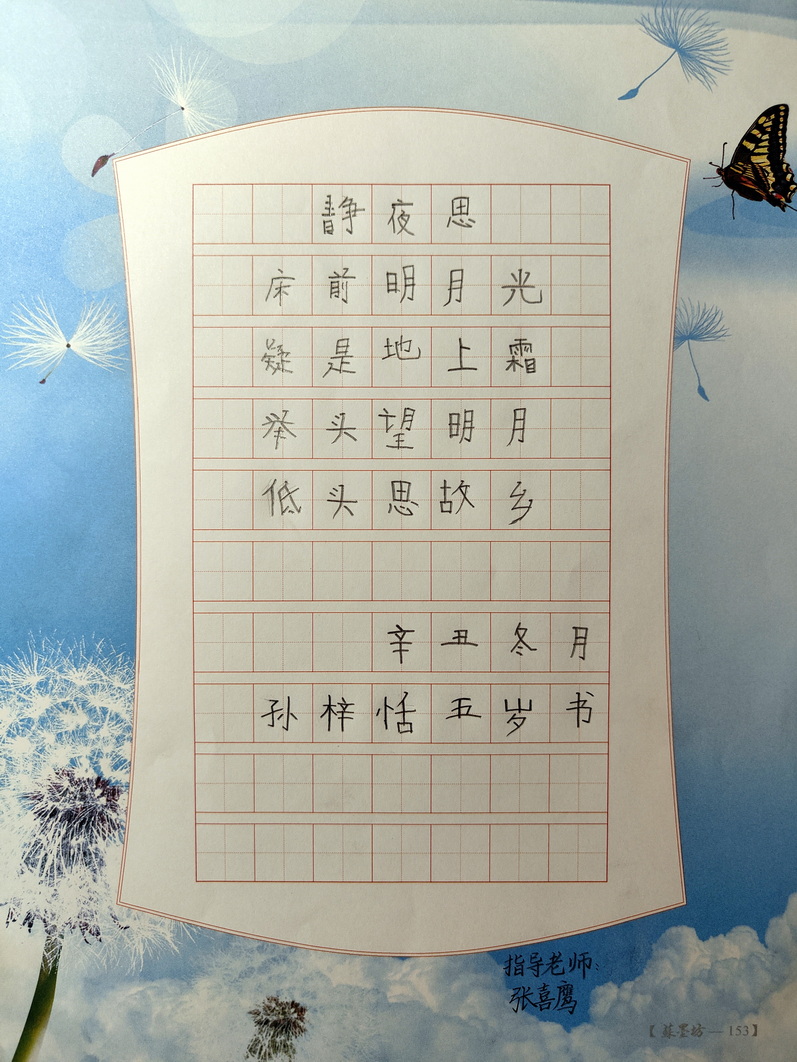 静夜思
床前明月光
疑是地上霜
举头望明月
低头思故乡
辛丑冬月
孙梓恬五岁书
指导老师:
张喜鹰
【蘇墨坊—153】